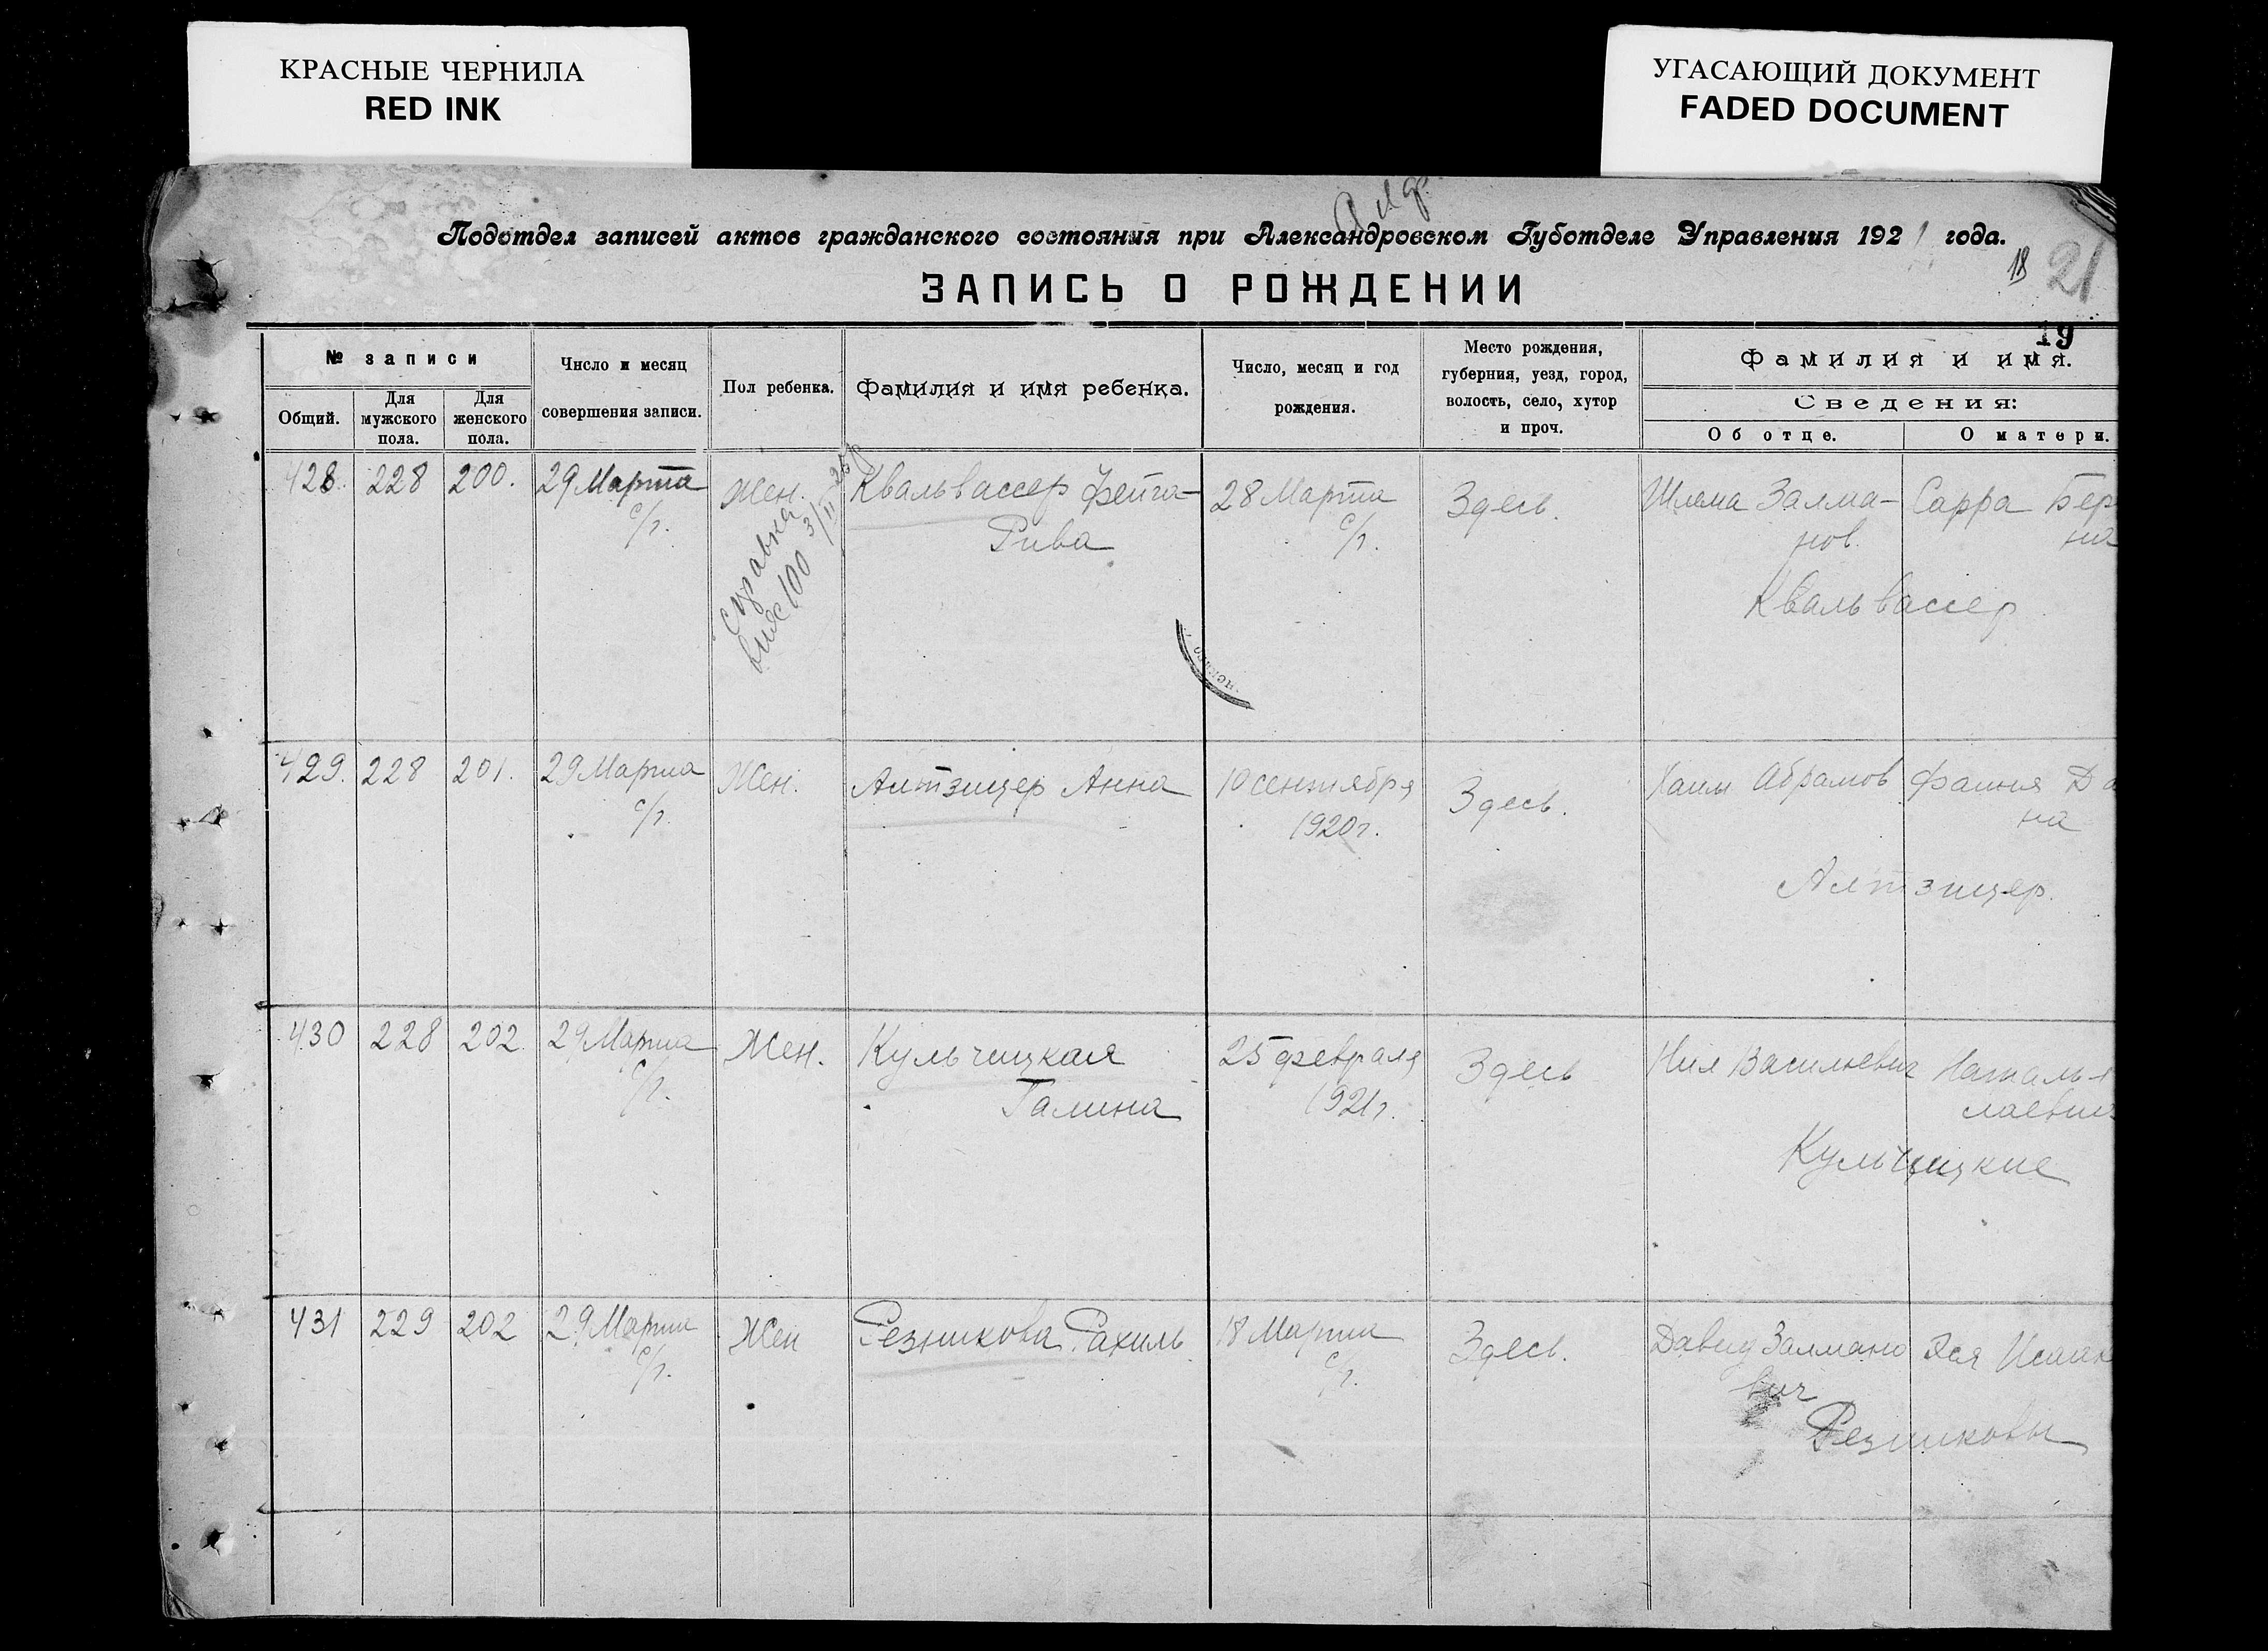 КРАСНЫЕ ЧЕРНИЛА
RED INK
УГАСАЮЩИЙ ДОКУМЕНТ
FADED DOCUMENT
Подотдел записей актов гражданского состояния при Александровском Губотделе Управления 1921 года.
18 21
ЗАПИСЬ О РОЖДЕНИИ
19
№ записи
Общий.
Для мужского пола.
Для женского пола.
Число и месяц
совершения записи.
Пол ребенка.
Фамилия и имя ребенка.
Число, месяц и год
рождения.
Место рождения,
губерния, уезд, город,
волость, село, хутор
и проч.
Фамилия и имя.
Сведения:
Об отце.
О матери.
428. 228 200. 29 Марта Жен. Квальвассер Фейга- 28 Марта Здесь. Шлема Залма- Сарра Бер
с/г. Рива с/г. нов. на
Справка
100 3/II
Квальвассер
429. 228 201. 29 Марта Жен. Алтзицер Анна 10 сентября Здесь. Хаим Абрамов Фаиня Да
с/г. 1920г. на
Алтзицер.
430 228 202 29 Марта Жен. Кульчицкая 25 февраля Здесь Нил Васильевич Наталь
с/г. Галина 1921г. лаевн
Кульчицкие
431 229 202 29 Марта Жен Резникова Рахиль 18 Марта Здесь. Давид Залмано Эся Исаак
с/г. с/г. вич
Резниковы